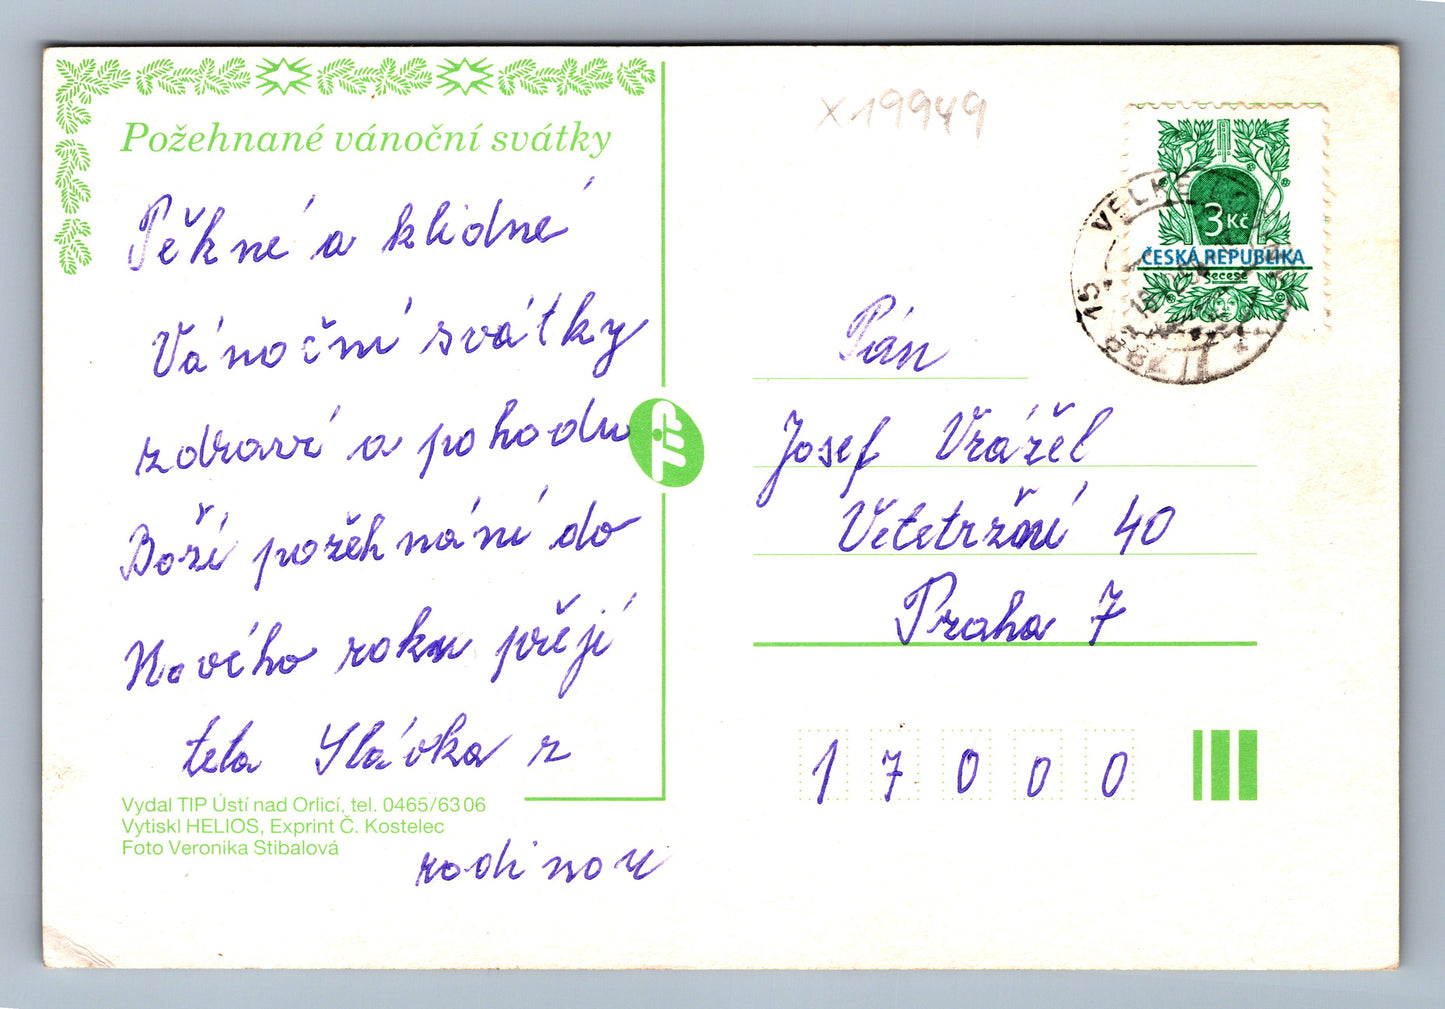 Požehnané vánoční svátky
Pěkné a klidné
Vánoční svátky
zdraví a pohodu
Boží požehnání do
Nového roku přejí
teta Slávka z
rodinou
Vydal TIP Ústí nad Orlicí, tel. 0465/6306
Vytiskl HELIOS, Exprint Č. Kostelec
Foto Veronika Stibalová
X19949
3 Kč
ČESKÁ REPUBLIKA
Secese
VELKÉ
15
788
Pán
Josef Vrážel
Veletržní 40
Praha 7
1 7 0 0 0